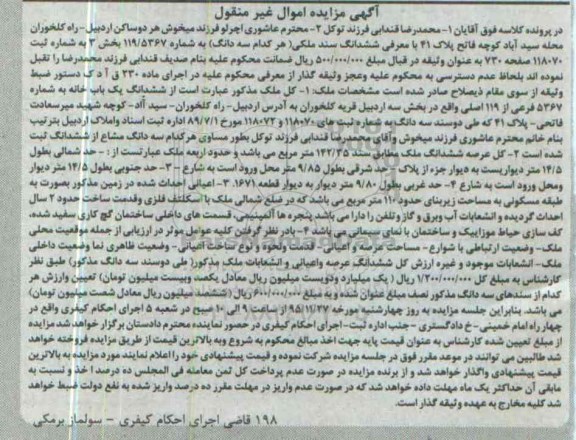 آگهی مزایده اموال غیر منقول
در پرونده کلاسه فوق آقایان ۱-محمدرضا قندابی فرزند توکل ۲- محترم عاشوری اچرلو فرزند میخوش هر دو ساکن اردبیل-راه کلخوران
محله سید آباد کوچه فاتح پلاک ۴۱ با معرفی ششدانگ سند ملکی( هر کدام سه دانگ) به شماره ۱۱۹/۵۳۶۷ بخش ۳ به شماره ثبت
۱۱۸۰۷۰ صفحه ۷۳۰ به عنوان وثیقه در قبال مبلغ ۵۰۰/۰۰۰/۰۰۰ ریال ضمانت محکوم علیه بنام صدیف قندابی فرزند محمدرضا را تقبل
نموده اند بلحاظ عدم دسترسی به محکوم علیه وعجز وثیقه گذار از معرفی محکوم علیه در اجرای ماده ۲۳۰ ق آ د ک دستور ضبط
وثیقه از سوی مقام ذیصلاح صادر شده است مشخصات ملک: ۱- کل ملک مذکور عبارت است از ششدانگ یک باب خانه به شماره
۵۳۶۷ فرعی از ۱۱۹ اصلی واقع در بخش سه اردبیل قریه کلخوران به آدرس اردبیل- راه کلخوران- سید آباد- کوچه شهید میرسعادت
فاتحی- پلاک ۴۱ که طی دوسند سه دانگ به شماره ثبت های ۱۱۸۰۷۰ و ۱۱۸۰۷۳ مورخ ۸۹/۷/۱ اداره ثبت اسناد واملاک اردبیل بترتیب
بنام خانم محترم عاشوری فرزند میخوش وآقای محمدرضا قندابی فرزند توکل بطور مساوی هرکدام سه دانگ مشاع از ششدانگ ثبت
شده است ۲- کل عرصه ششدانگ ملک مطابق سند ۱۴۲/۳۵ متر مربع می باشد و حدود اربعه ملک عبارتست از : ۱- حد شمالی بطول
۱۴/۵ متر دیواریست به دیوار جزء از پلاک ۲- حد شرقی بطول ۹/۸۵ متر ومحل ورود است به شارع ۳- حد جنوبی بطول ۱۴/۵ متر دیوار
ومحل ورود است به شارع ۴- حد غربی بطول ۹/۸۰ متر دیوار به دیوار قطعه ۱۶۷۱. ۳- اعیانی احداث شده در زمین مذکور بصورت به
طبقه مسکونی به مساحت زیربنای حدود ۱۱۰ متر مربع می باشد که در ضلع شمالی ملک با اسکلتف فلزی وقدمت ساخت حدود ۲ سال
احداث گردیده و انشعابات آب وبرق و گاز و تلفن را دارا می باشد پنجره ها آلمینیمی، قسمت های داخلی ساختمان گچ کاری سفید شده،
کف سازی حیاط موزاییک و ساختمان با نمای سیمانی می باشد ۴- بادر نظر گرفتن کلیه عوامل موثر در ارزیابی از جمله موقعیت محلی
ملک- وضعیت ارتباطی با شوارع- مساحت عرصه و اعیانی- قدمت وکیفیت ونحوه و نوع ساخت اعیانی- وضعیت ظاهری نما وضعیت داخلی
ملک- انشعابات موجود و غیره ارزش کل ششدانگ عرصه واعیانی و انشعابات ملک مذکور( طی دوسند سه دانگ مذکور) طبق نظر
کارشناس به مبلغ کل ۱/۲۰۰/۰۰۰/۰۰۰ ریال ( یک میلیارد ودویست میلیون ریال معادل یکصد وبیست میلیون تومان) تعیین وارزش هر
کدام از سندهای سه دانگ مذکور نصف مبلغ عنوان شده و به مبلغ ۶۰۰/۰۰۰/۰۰۰ ریال (ششصد میلیون ریال معادل شصت میلیون تومان)
می باشد. بنابراین جلسه مزایده به روز چهارشنبه مورخه ۹۵/۱۱/۲۷ از ساعت ۹ الی ۱۰ صبح در شعبه ۵ اجرای احکام کیفری واقع در
چهار راه امام خمینی- خ دادگستری - جنب اداره ثبت- اجرای احکام کیفری در حضور نماینده محترم دادستان برگزار خواهد شد مزایده
از مبلغ تعیین شده کارشناس به عنوان قیمت پایه جهت اخذ مبالغ محکوم به شروع وبه بالاترین قیمت از طریق مزایده فروخته خواهد
شد طالبین می توانند در موعد مقرر فوق در جلسه مزایده شرکت نموده و قیمت پیشنهادی خود را اعلام نمایند مورد مزایده به بالاترین
قیمت پیشنهادی واگذار خواهد شد و از برنده مزایده در صورت عدم پرداخت کل ثمن معامله فی المجلس ده درصد ا خذ و نسبت به
مابقی آن حداکثر یک ماه مهلت داده خواهد شد که در صورت عدم واریز در مهلت مقرر ده درصد واریز شده به نفع دولت ضبط خواهد
شد کلیه مخارج به عهده وثیقه گذار است.
۱۹۸ قاضی اجرای احکام کیفری - سولماز برمکی